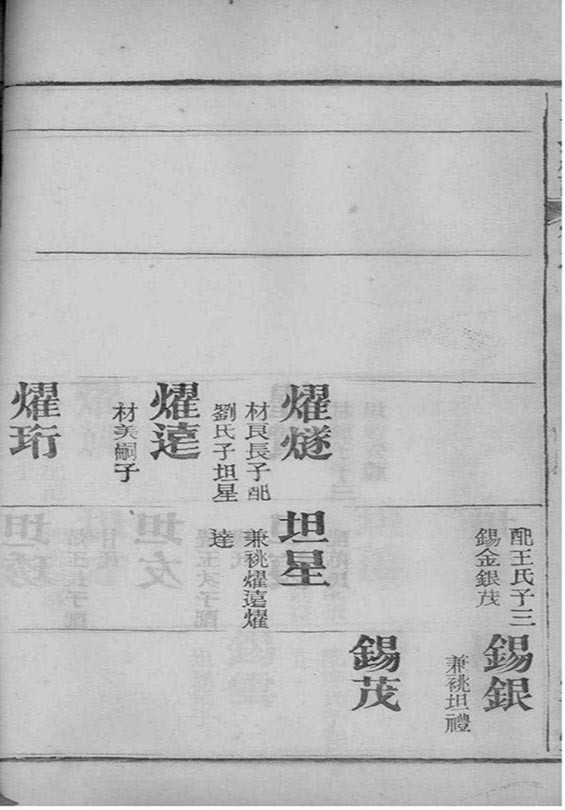 配王氏子三
錫金銀茂
錫銀
兼祧坦禮
錫茂
燿燧
材良長子配
劉氏子坦星
坦星
兼祧燿遠燿
達
燿遠
材美嗣子
燿珩